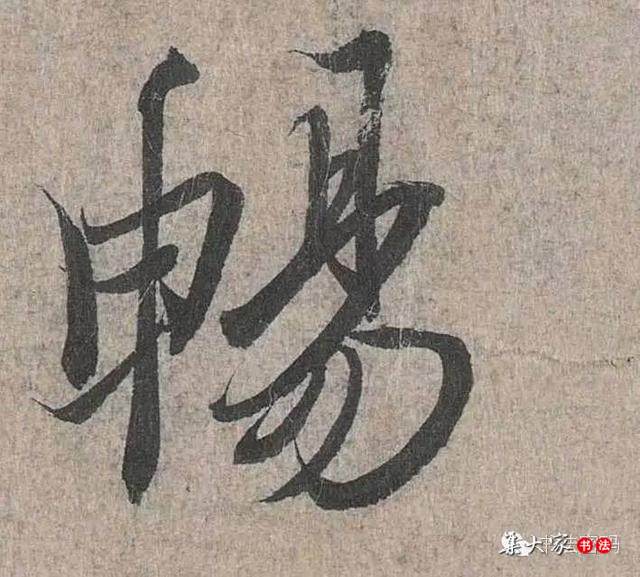 暢
集大家书法